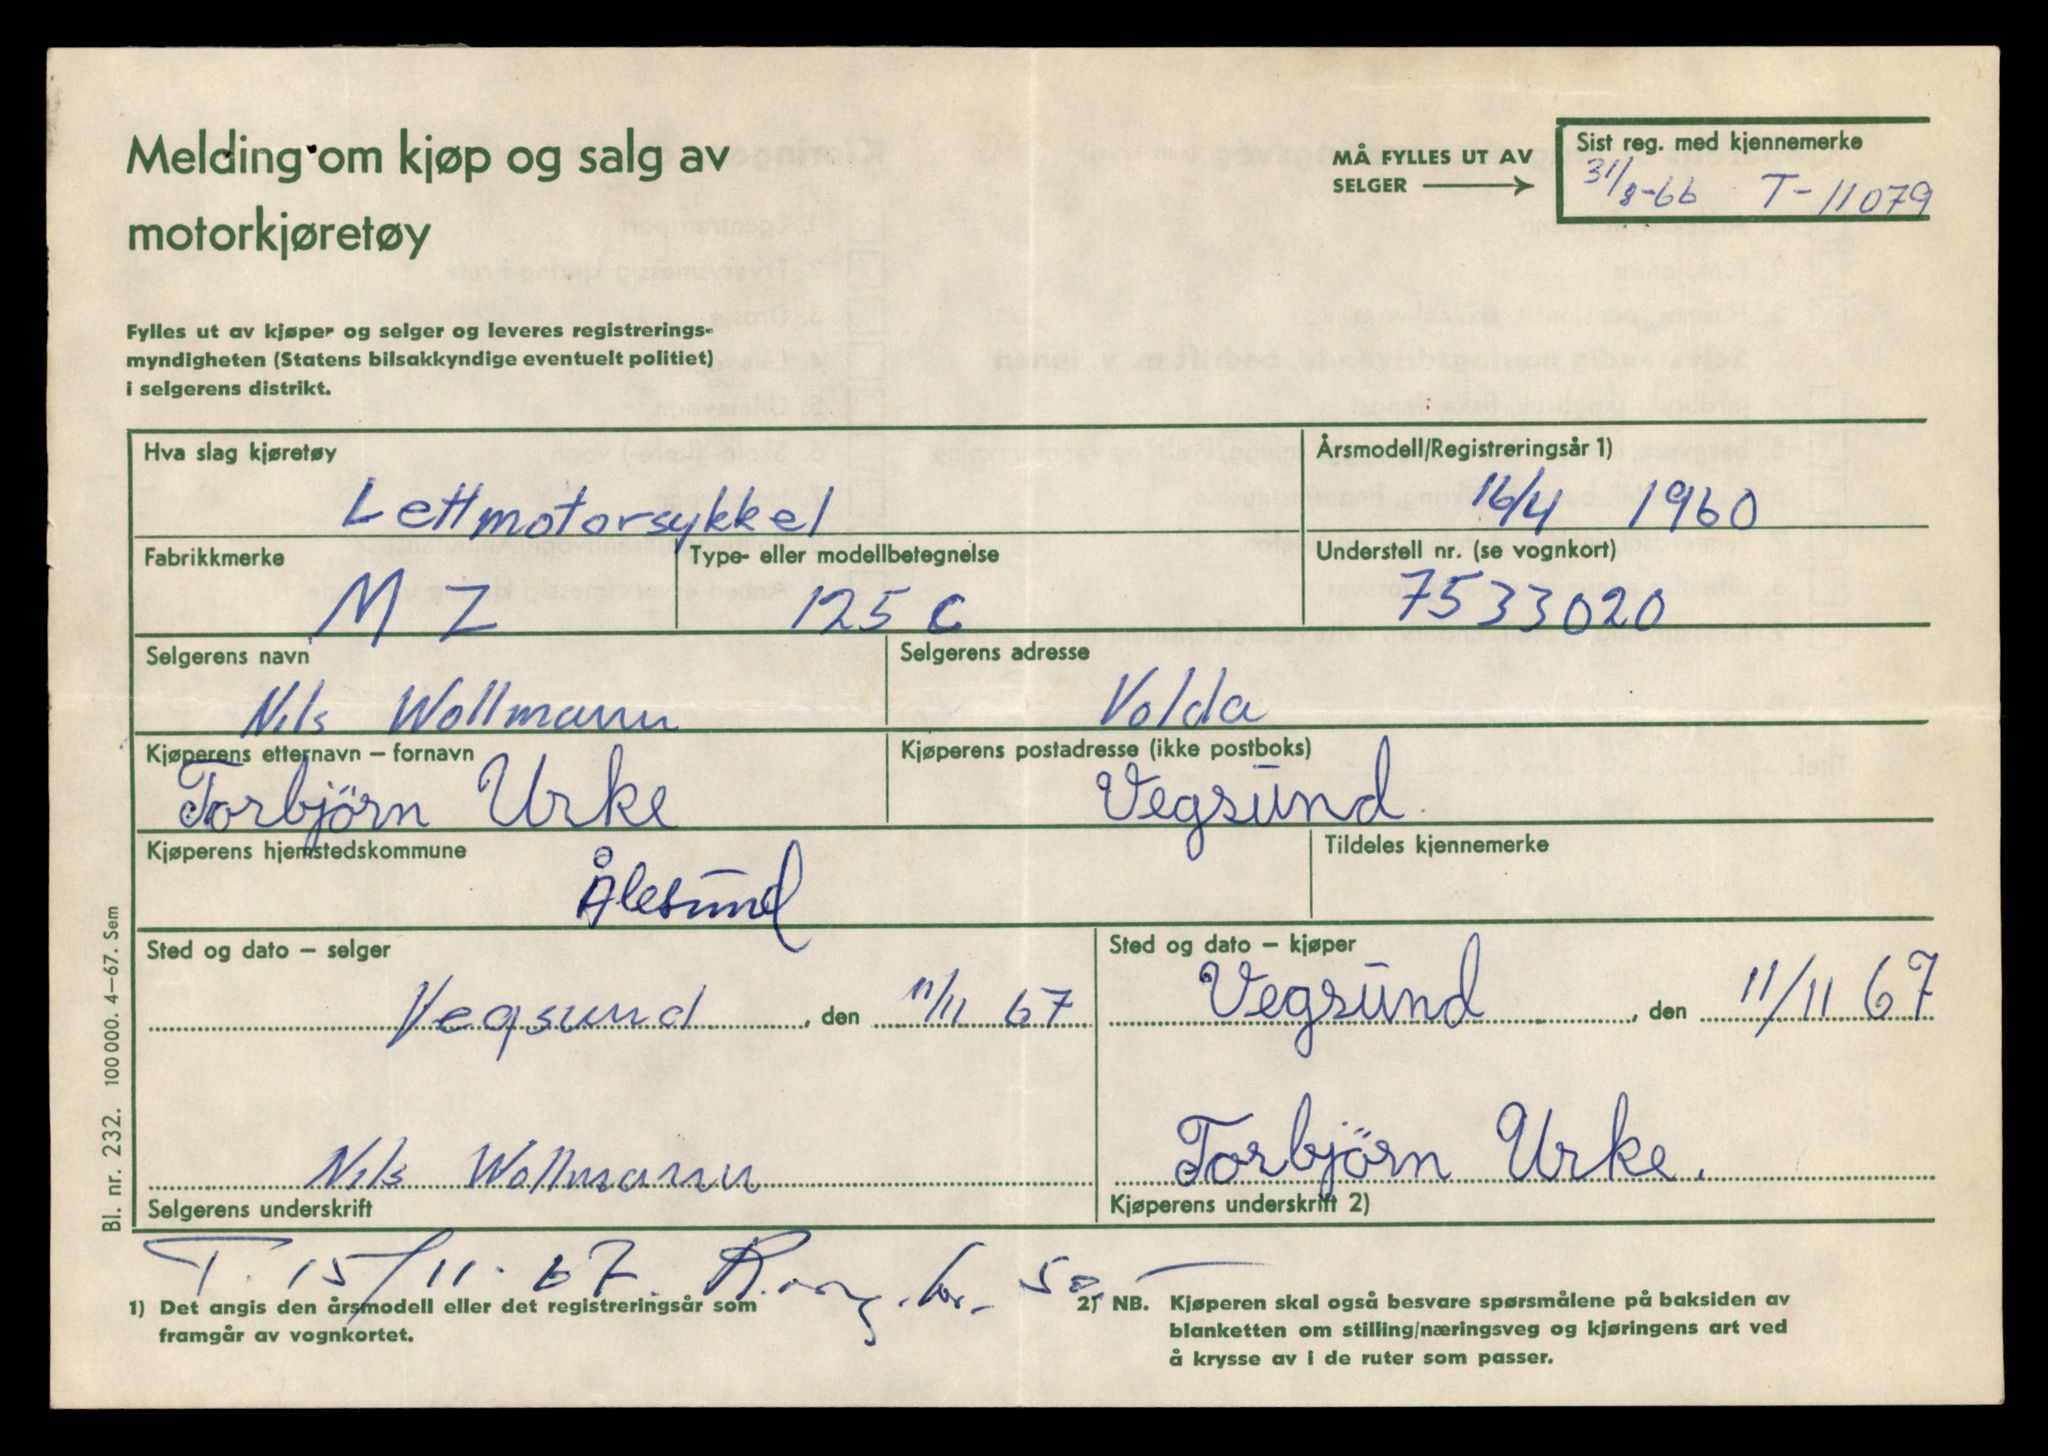 Melding om kjøp og salg av
motorkjøretøy
MÅ FYLLES UT AV
SELGER
Sist reg. med kjennemerke
31/8-66 T-11079
Fylles ut av kjøper og selger og leveres registrerings-
myndigheten (Statens bilsakkyndige eventuelt politiet)
i selgerens distrikt.
Hva slag kjøretøy
Lettmotorsykkel
Årsmodell/Registreringsår 1)
16/4 1960
Fabrikkmerke
MZ
Type- eller modellbetegnelse
125 C
Understell nr. (se vognkort)
7533020
Selgerens navn
Nils Wollmann
Selgerens adresse
Volda
Kjøperens etternavn – fornavn
Torbjörn Urke
Kjøperens postadresse (ikke postboks)
Vegsund.
Kjøperens hjemstedskommune
Ålesund
Tildeles kjennemerke
Sted og dato – selger
Vegsund, den 11/11 67
Sted og dato – kjøper
Vegsund, den 11/11 67
Nils Wollmann
Selgerens underskrift
Torbjörn Urke.
Kjøperens underskrift 2)
Bl. nr. 232. 100 000. 4–67. Sem
T. 15/11-67. kr. 50,-
1) Det angis den årsmodell eller det registreringsår som
framgår av vognkortet.
2) NB. Kjøperen skal også besvare spørsmålene på baksiden av
blanketten om stilling/næringsveg og kjøringens art ved
å krysse av i de ruter som passer.